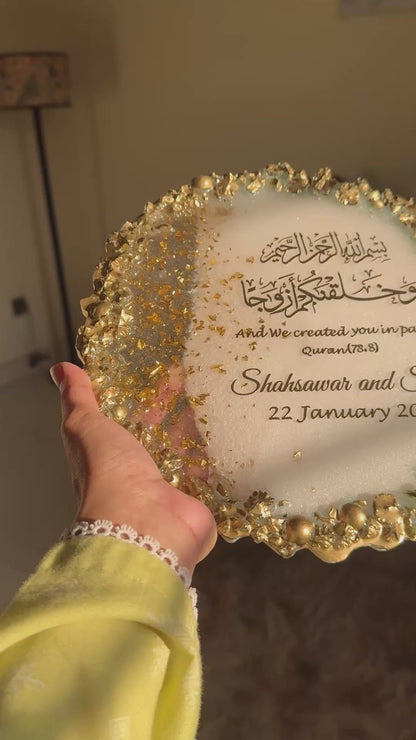 بِسْمِ اللَّهِ الرَّحْمَٰنِ الرَّحِيمِ
وَخَلَقْنَاكُمْ أَزْوَاجًا
And We created you in pa
Quran(78:8)
Shahsawar and S
22 January 20